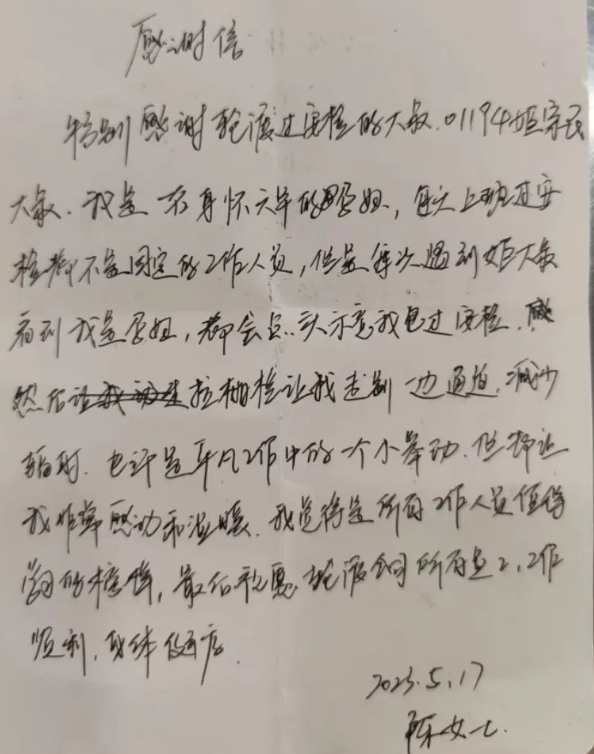 感谢信
特别感谢轮渡过安检的大叔.01194姬宗民
大叔.我是一名身怀六甲的孕妇，每天上班过安
检都不是固定的工作人员，但是每次遇到姬大叔
看到我是孕妇，都会点头示意我免过安检.
然后拉栅栏让我走到一边通道.减少
辐射.也许是平凡工作中的一个小举动.但却让
我非常感动和温暖.我觉得是所有工作人员值得
学习的榜样，最后祝愿轮渡公司所有员工,工作
顺利.身体健康.
2023.5.17
陈女士.